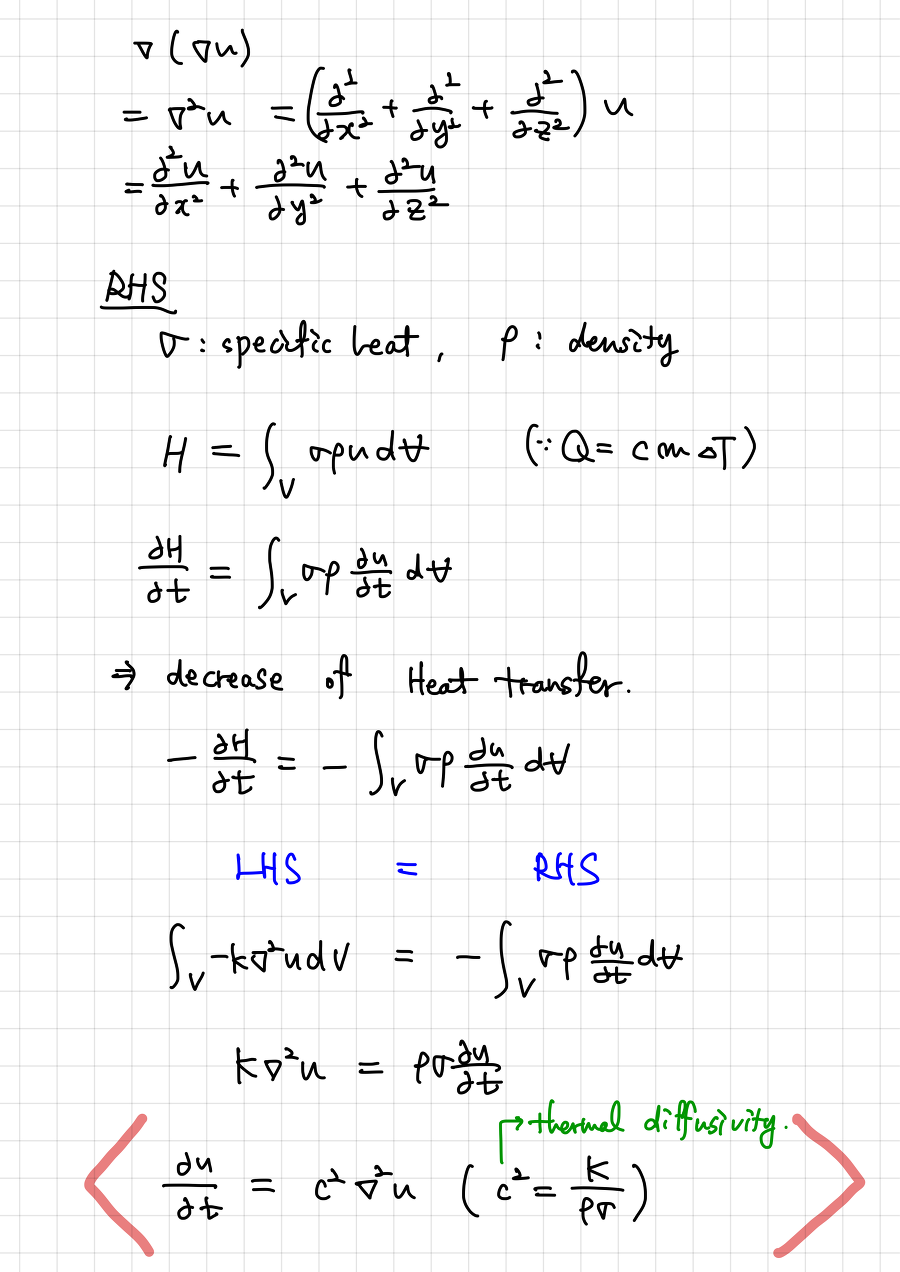 ∇(∇u)
= ∇²u = (∂²/∂x² + ∂²/∂y² + ∂²/∂z²) u
= ∂²u/∂x² + ∂²u/∂y² + ∂²u/∂z²
RHS
σ : specific heat , ρ : density
H = ∫_V σρu dV (∵ Q = c m ΔT)
∂H/∂t = ∫_V σρ ∂u/∂t dV
⇒ decrease of Heat transfer.
- ∂H/∂t = - ∫_V σρ ∂u/∂t dV
LHS = RHS
∫_V -k∇²u dV = - ∫_V σρ ∂u/∂t dV
K∇²u = ρσ ∂u/∂t
→ thermal diffusivity.
∂u/∂t = c² ∇²u ( c² = K/ρσ )